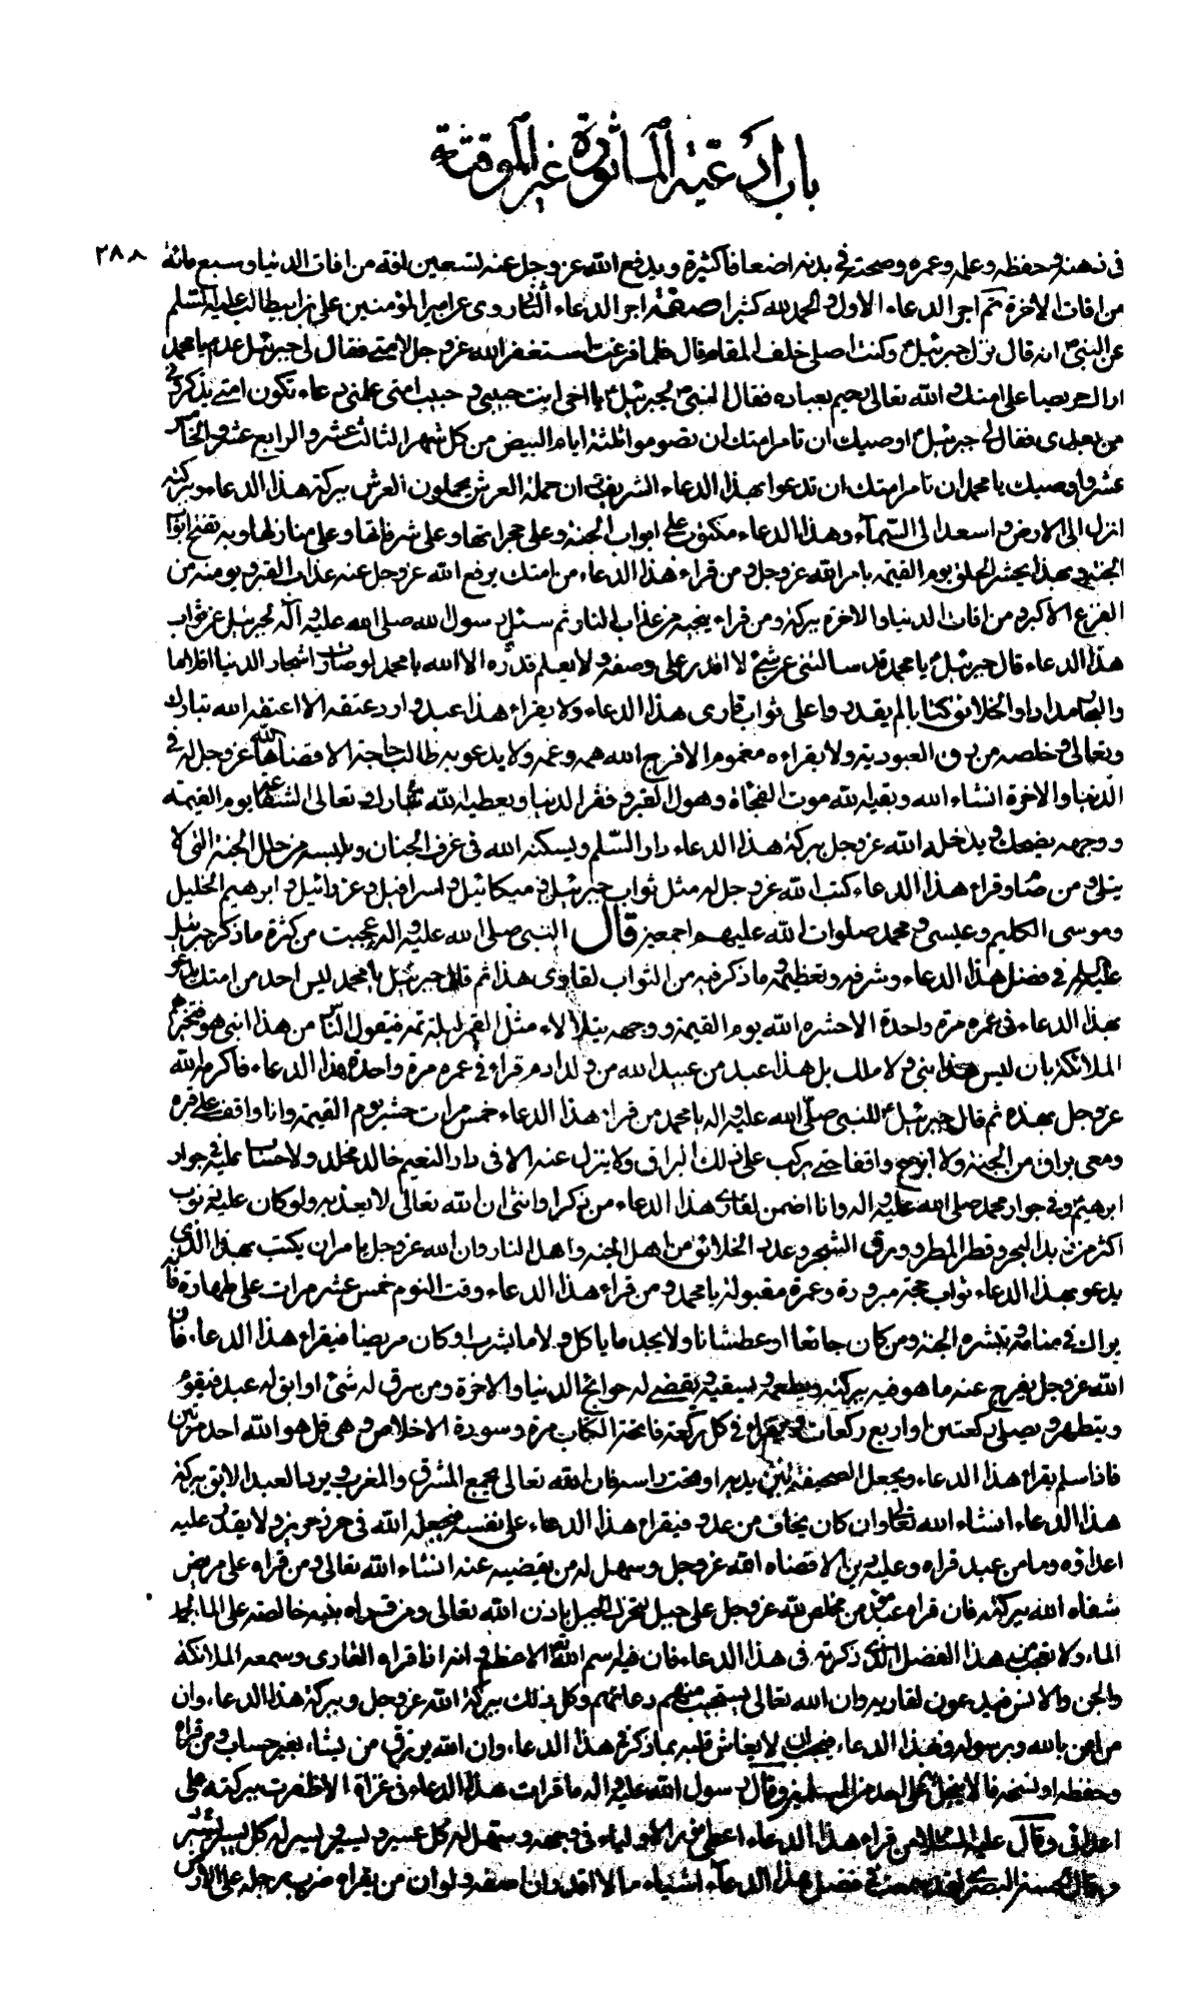 باب ادعية المأثورة غير الموقتة
٢٨٨
فى ذهنه وحفظه وعلمه وعمره وصحته فى بدنه اضعافا كثيرة ويدفع الله عز وجل عنه تسعين افة من افات الدنيا وسبع مائة
من افات الاخرة تم اجر الدعاء الاول والحمد لله كثيرا صفة اجر الدعاء الثانى روى عن امير المؤمنين على بن ابيطالب عليه السلم
عن النبى انه قال نزل جبرئيل وكنت اصلى خلف المقام قال فلما فرغت استغفر الله عز وجل لامتى فقال لى جبرئيل يا محمد
اراك حريصا على امتك والله تعالى رحيم بعباده فقال النبى لجبرئيل يا اخى انت حبيبى وحبيب امتى علمنى دعاء تكون امتى يذكرونى
من بعدى فقال لى جبرئيل اوصيك ان تامر امتك ان تصوموا ثلثة ايام البيض من كل شهر الثالث عشر والرابع عشر والخامس
عشر واوصيك يا محمد ان تامر امتك ان تدعوا بهذا الدعاء الشريف ان حملة العرش يحملون العرش ببركة هذا الدعاء وببركته
انزل الى الارض واسعد الى السماء وهذا الدعاء مكتوب على ابواب الجنة وعلى حجراتها وعلى شرفاتها وعلى منازلها وبه تفتح ابواب
الجنة وبهذا يحشر الخلق يوم القيمة بامر الله عز وجل ومن قراء هذا الدعاء من امتك يرفع الله عز وجل عنه عذاب القبر ويومنه من
الفزع الاكبر ومن افات الدنيا والاخرة ببركته ومن قراء ينجيه من عذاب النار ثم سئل رسول الله صلى الله عليه وآله لجبرئيل عن ثواب
هذا الدعاء قال جبرئيل يا محمد قد سالتنى عن شئ لا اقدر على وصفه ولا يعلم قدره الا الله يا محمد لو صارت اشجار الدنيا اقلاما
والبحار مدادا والخلائق كتابا لم يقدروا على ثواب قارى هذا الدعاء ولا يقراء هذا عبد واراد عتقه الا اعتقه الله تبارك
وتعالى وخلصه من رق العبودية ولا يقراءه مغموم الا فرج الله همه وغمه ولا يدعو به طالب حاجة الا قضاها الله عز وجل له فى
الدنيا والاخرة انشاء الله ويقيه الله موت الفجاة وهول القبر وفقر الدنيا ويعطيه الله تبارك وتعالى الشفاعة يوم القيمة
ووجهه يضحك ويدخله الله عز وجل ببركة هذا الدعاء دار السلم ويسكنه الله فى غرف الجنان ويلبسه من حلل الجنة التى لا
يبلى ومن صام وقراء هذا الدعاء كتب الله عز وجل له مثل ثواب جبرئيل وميكائيل واسرافيل وعزرائيل وابرهيم الخليل
وموسى الكليم وعيسى ومحمد صلوات الله عليهم اجمعين قال النبى صلى الله عليه واله عجبت من كثرة ما ذكر جبرئيل
عليه السلم فى فضل هذا الدعاء وشرفه وتعظيمه وما ذكر فيه من الثواب لقارى هذا ثم قال جبرئيل يا محمد ليس احد من امتك يدعو
بهذا الدعاء فى عمره مرة واحدة الا حشره الله يوم القيمة ووجهه يتلالاء مثل القمر ليلة تمه فيقول الناس من هذا انبى هو فتخبرهم
الملائكة بان ليس هذا نبى ولا ملك بل هذا عبد من عبيد الله من ولد ادم قراء فى عمره مرة واحدة هذا الدعاء فاكرمه الله
عز وجل بهذه ثم قال جبرئيل للنبى صلى الله عليه واله يا محمد من قراء هذا الدعاء خمس مرات حشر يوم القيمة وانا واقف على قبره
ومعى براق من الجنة ولا ابرح واقفا حتى يركب على ذلك البراق ولا ينزل عنه الا فى دار النعيم خالد مخلد ولا حساب عليه فى جوار
ابرهيم وفى جوار محمد صلى الله عليه واله وانا اضمن لقارى هذا الدعاء من ذكر او انثى ان الله تعالى لا يعذبه ولو كان عليه ذنوب
اكثر من زبد البحر وقطر المطر وورق الشجر وعدد الخلائق من اهل الجنة واهل النار وان الله عز وجل يامر ان يكتب بهذا الذى
يدعو بهذا الدعاء ثواب حجة مبرورة وعمرة مقبولة يا محمد ومن قراء هذا الدعاء وقت النوم خمس عشر مرات على طهارة فانه
يراك فى منامه وتبشره الجنة ومن كان جائعا او عطشانا ولا يجد ما ياكل ولا ما يشرب او كان مريضا فيقراء هذا الدعاء فان
الله عز وجل يفرج عنه ما هو فيه ببركته ويطعمه ويسقيه ويقضى له حوائج الدنيا والاخرة ومن سرق له شئ او ابق له عبد فيقوم
ويتطهر ويصلى ركعتين او اربع ركعات ويقراء فى كل ركعة فاتحة الكتاب مرة وسورة الاخلاص وهى قل هو الله احد مرتين
فاذا سلم يقراء هذا الدعاء ويجعل الصحيفة بين يديه او تحت راسه فان الله تعالى يجمع المشرق والمغرب ويرد العبد الابق ببركة
هذا الدعاء انشاء الله تعالى وان كان يخاف من عدو فيقراء هذا الدعاء على نفسه فيجعله الله فى حرز حريز ولا يقدر عليه
اعداؤه وما من عبد قراه وعليه دين الا قضاه الله عز وجل وسهل له من يقضيه عنه انشاء الله تعالى ومن قراه على مريض
شفاه الله ببركته فان قراه عبد مؤمن مخلص لله عز وجل على جبل لتحرك الجبل باذن الله تعالى ومن قراه بنية خالصة على الماء لجمد
الماء ولا تعجب من هذا الفضل الذى ذكرته فى هذا الدعاء فان فيه اسم الله تعالى الاعظم وانه اذا قراه القارى وسمعه الملائكة
والجن والانس فيدعون لقاريه وان الله تعالى يستجيب منهم دعائهم وكل ذلك ببركة الله عز وجل وببركة هذا الدعاء وان
من امن بالله وبرسوله وبهذا الدعاء فيجب ان لا يغاش قلبه بما ذكر فى هذا الدعاء وان الله يرزق من يشاء بغير حساب ومن قراه
وحفظه او نسخه فلا يبخل به على احد من المسلمين وقال رسول الله عليه واله ما قرات هذا الدعاء فى غزاة الا ظفرت ببركته على
اعدائى وقال عليه السلام من قراء هذا الدعاء اعطى نور الاولياء فى وجهه وسهل له كل عسير ويسر له كل يسير
وقال الحسن البصرى لقد سمعت فى فضل هذا الدعاء اشياء ما لا اقدر ان اصفه ولو ان من يقراه ضرب برجله على الارض